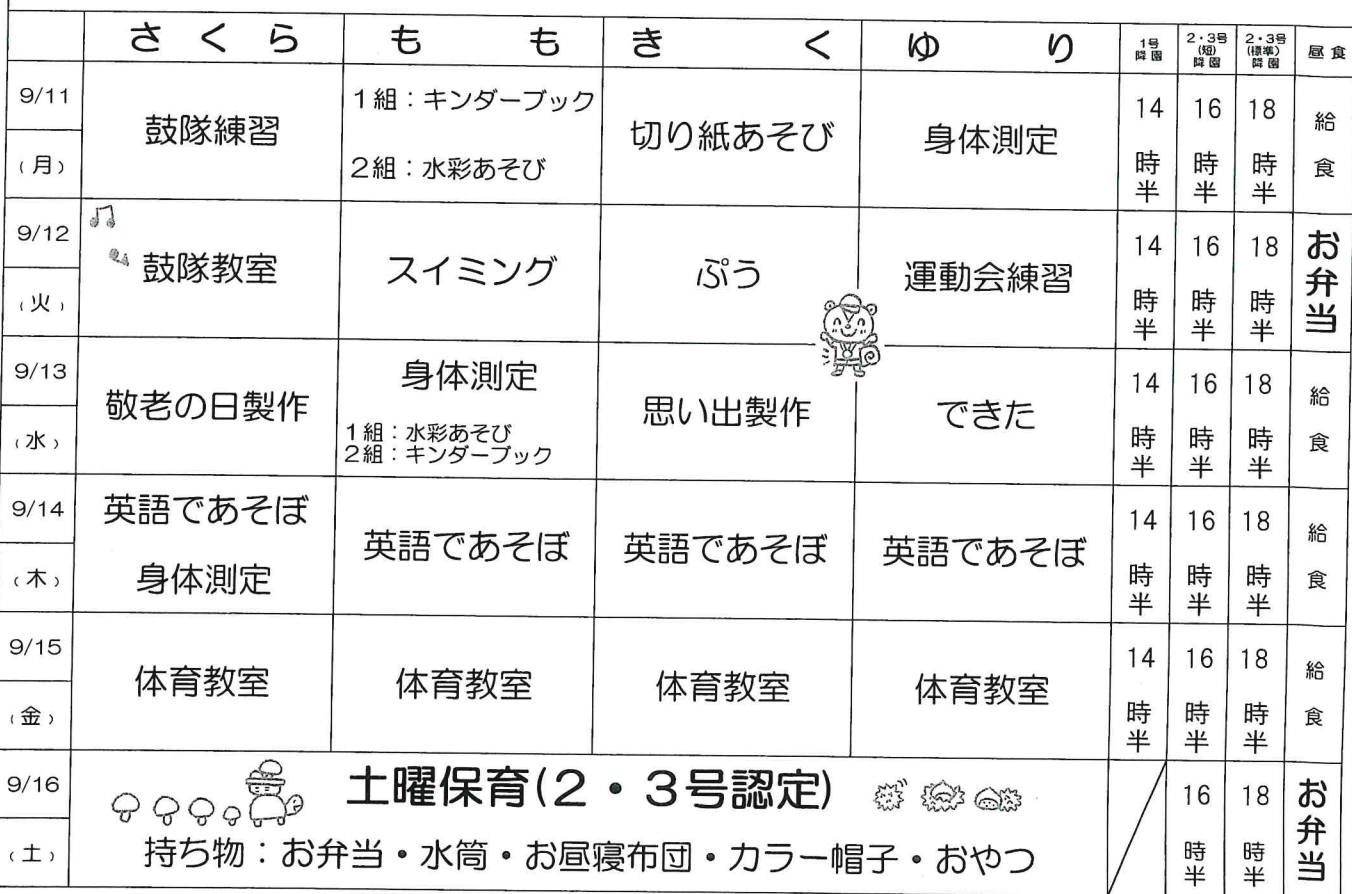 さくら もも きく ゆり 1号降園 2・3号(短)降園 2・3号(標準)降園 昼食
9/11
(月)
鼓隊練習
1組：キンダーブック
2組：水彩あそび
切り紙あそび
身体測定
14時半
16時半
18時半
給食
9/12
(火)
鼓隊教室
スイミング
ぷう
運動会練習
14時半
16時半
18時半
お弁当
9/13
(水)
敬老の日製作
身体測定
1組：水彩あそび
2組：キンダーブック
思い出製作
できた
14時半
16時半
18時半
給食
9/14
(木)
英語であそぼ
身体測定
英語であそぼ
英語であそぼ
英語であそぼ
14時半
16時半
18時半
給食
9/15
(金)
体育教室
体育教室
体育教室
体育教室
14時半
16時半
18時半
給食
9/16
(土)
土曜保育(2・3号認定)
持ち物：お弁当・水筒・お昼寝布団・カラー帽子・おやつ
16時半
18時半
お弁当